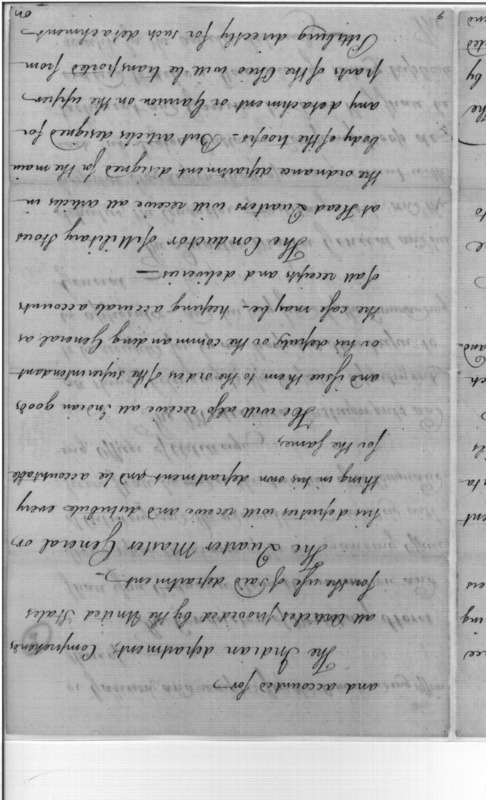 and accounted for
The Indian department, Comprehends
all Articles provided by the United States
for the use of said department.
The Quarter Master General or
his deputies will receive and distribute every
thing in his own department and be accountable
for the same,
He will also receive all Indian goods
and issue them to the orders of the superintendant
or his deputy, or the commanding General as
the case may be, keeping accurate accounts
of all receipts and deliveries—
The Conductor of Military Stores
at Head Quarters will receive all articles in
the ordnance department designed for the main
body of the troops - But articles designed for
any detachment or Garrison on the upper
parts of the Ohio will be transported from
Pittsburg directly for such detachment
or